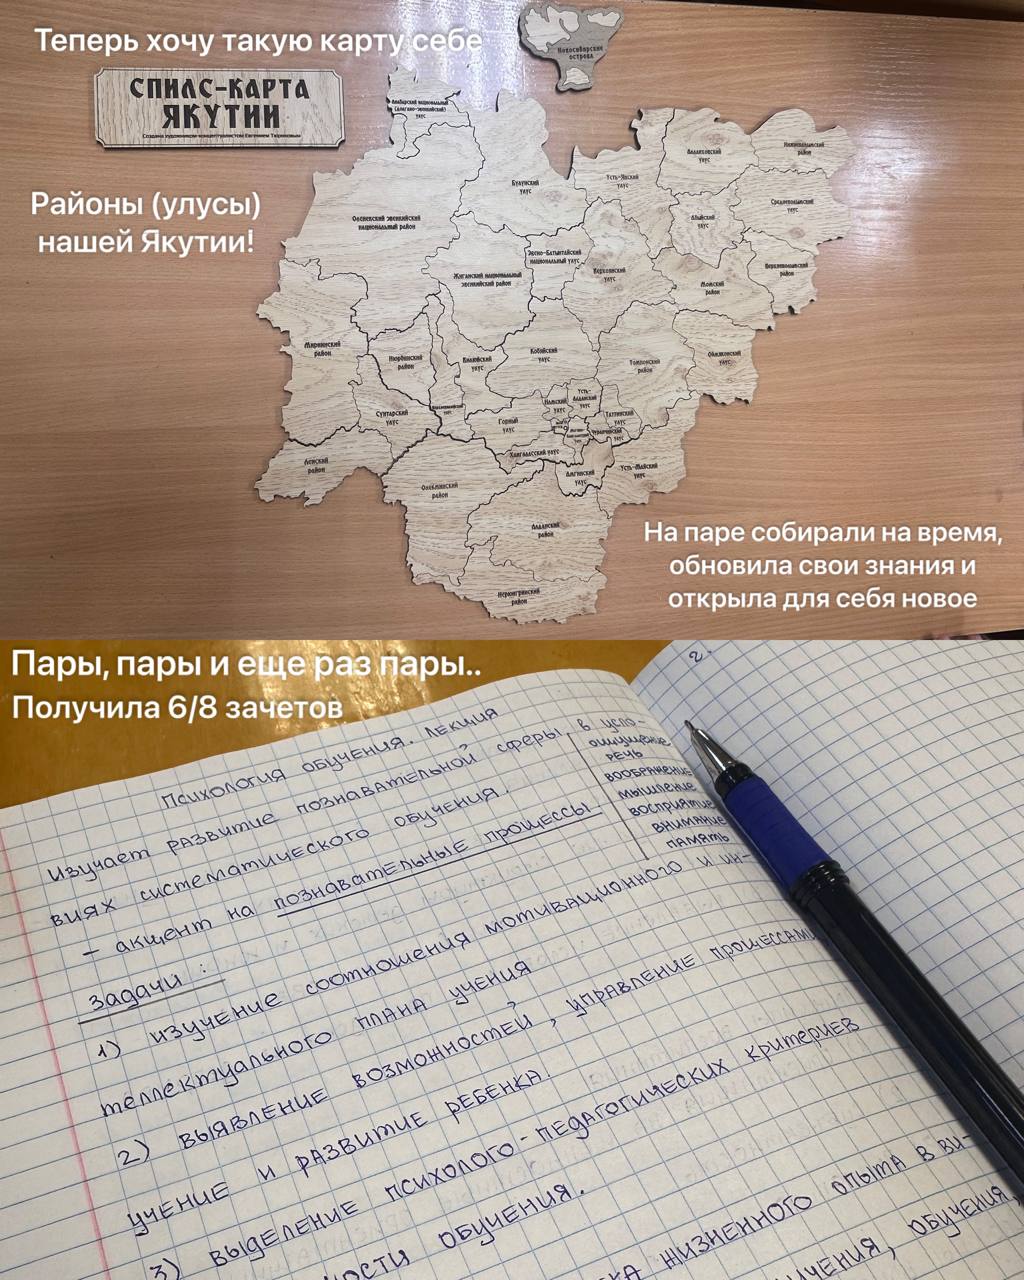 Теперь хочу такую карту себе
СПИЛС-КАРТА
ЯКУТИИ
Создана художником-концептуалистом Евгением Тюриковым
Районы (улусы)
нашей Якутии!
Новосибирские
острова
Анабарский национальный
(долгано-эвенкийский)
улус
Булунский
улус
Усть-Янский
улус
Аллаиховский
улус
Нижнеколымский
район
Оленекский эвенкийский
национальный район
Абыйский
улус
Среднеколымский
улус
Жиганский национальный
эвенкийский район
Эвено-Бытантайский
национальный улус
Верхоянский
улус
Момский
район
Верхнеколымский
район
Мирнинский
район
Нюрбинский
район
Вилюйский
улус
Кобяйский
улус
Томпонский
район
Оймяконский
улус
Сунтарский
улус
Горный
улус
Намский
улус
Усть-
Алданский
улус
Таттинский
улус
Чурапчинский
улус
Хангаласский улус
Ленский
район
Олекминский
район
Амгинский
улус
Усть-Майский
улус
Алданский
район
Нерюнгринский
район
На паре собирали на время,
обновила свои знания и
открыла для себя новое
Пары, пары и еще раз пары..
Получила 6/8 зачетов
2.
Психология обучения. Лекция
Изучает развитие познавательной сферы в усло-
виях систематического обучения.
- акцент на познавательные процессы
ощущение
речь
воображение
мышление
восприятие
внимание
память
задачи:
1) изучение соотношения мотивационного и ин-
теллектуального плана учения
2) выявление возможностей, управление процессами
учение и развитие ребенка.
3) выделение психолого-педагогических критериев
ности обучения.
жизненного опыта в ви-
обучения,